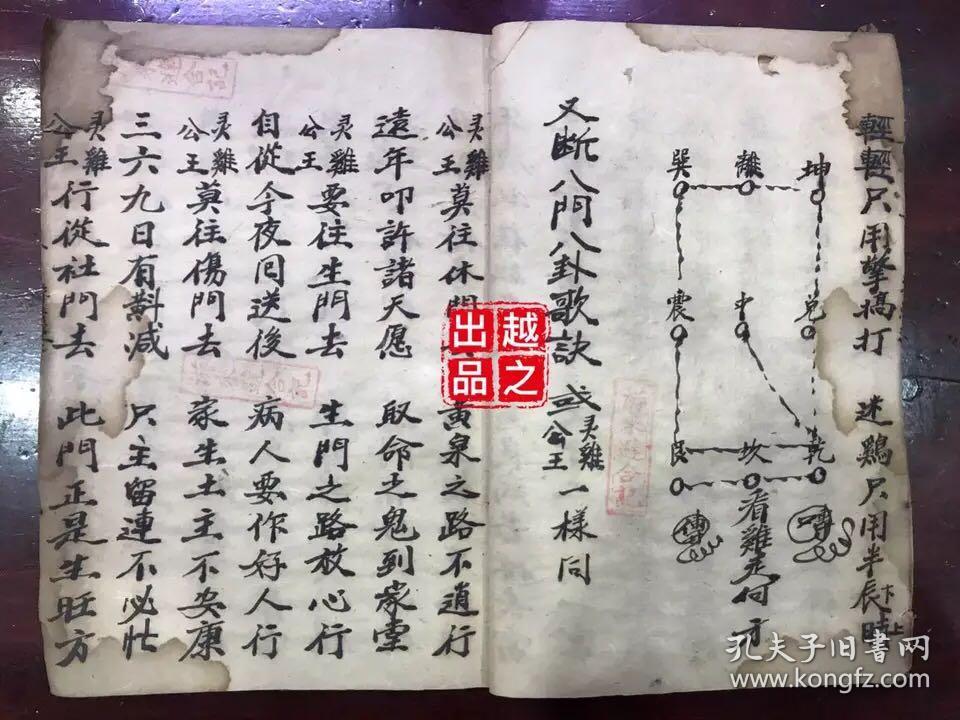 輕輕只用擎搞打 迷鷄只用半辰時
坤 離 巽
兑 中 震
乾 坎 艮
看雞走何方
又斷八門八卦歌訣 或灵雞公王一樣同
灵雞公王莫往休門 黃泉之路不逍行
遠年叩許諸天愿 取命之鬼到家堂
灵雞公王要往生門去 生門之路放心行
自從今夜囘送後 病人要作好人行
灵雞公王莫往傷門去 家生土主不安康
三六九日有斟减 只主留連不必忙
灵雞公王行從社門去 此門正是生旺方
越之出品
孔夫子旧书网
www.kongfz.com